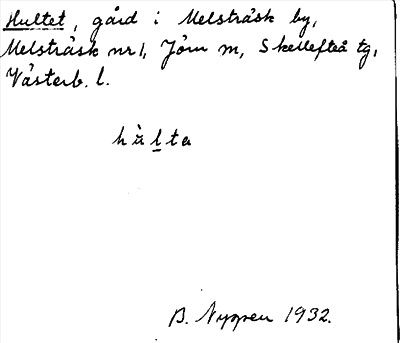 Hultet, gård i Melsträsk by,
Melsträsk nr 1, Jörn m, Skellefteå tg,
Västerb. l.
hùl̲ta
B. Nyppen 1932.